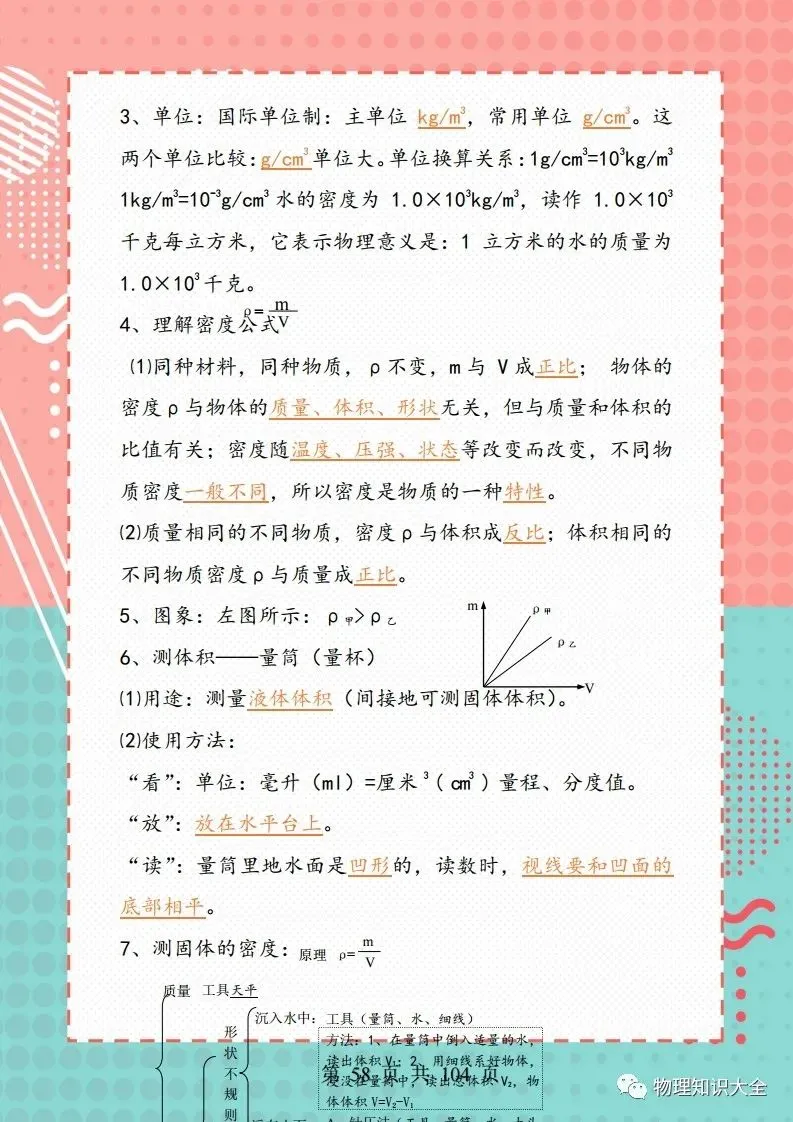 3、单位：国际单位制：主单位 kg/m³，常用单位 g/cm³。这
两个单位比较：g/cm³单位大。单位换算关系：1g/cm³=10³kg/m³
1kg/m³=10⁻³g/cm³ 水的密度为 1.0×10³kg/m³，读作 1.0×10³
千克每立方米，它表示物理意义是：1 立方米的水的质量为
1.0×10³千克。
4、理解密度公式 ρ=m/V
⑴同种材料，同种物质，ρ不变，m与 V成正比； 物体的
密度ρ与物体的质量、体积、形状无关，但与质量和体积的
比值有关；密度随温度、压强、状态等改变而改变，不同物
质密度一般不同，所以密度是物质的一种特性。
⑵质量相同的不同物质，密度ρ与体积成反比；体积相同的
不同物质密度ρ与质量成正比。
5、图象：左图所示：ρ甲>ρ乙
m ρ甲
ρ乙
V
6、测体积——量筒（量杯）
⑴用途：测量液体体积（间接地可测固体体积）。
⑵使用方法：
“看”：单位：毫升（ml）=厘米³（cm³）量程、分度值。
“放”：放在水平台上。
“读”：量筒里地水面是凹形的，读数时，视线要和凹面的
底部相平。
7、测固体的密度：原理 ρ=m/V
质量 工具天平
形状不规则
沉入水中：工具（量筒、水、细线）
方法：1、在量筒中倒入适量的水，
读出体积V₁；2、用细线系好物体，
浸没在量筒中，读出总体积V₂，物
体体积V=V₂-V₁
第 58 页 共 104 页
物理知识大全